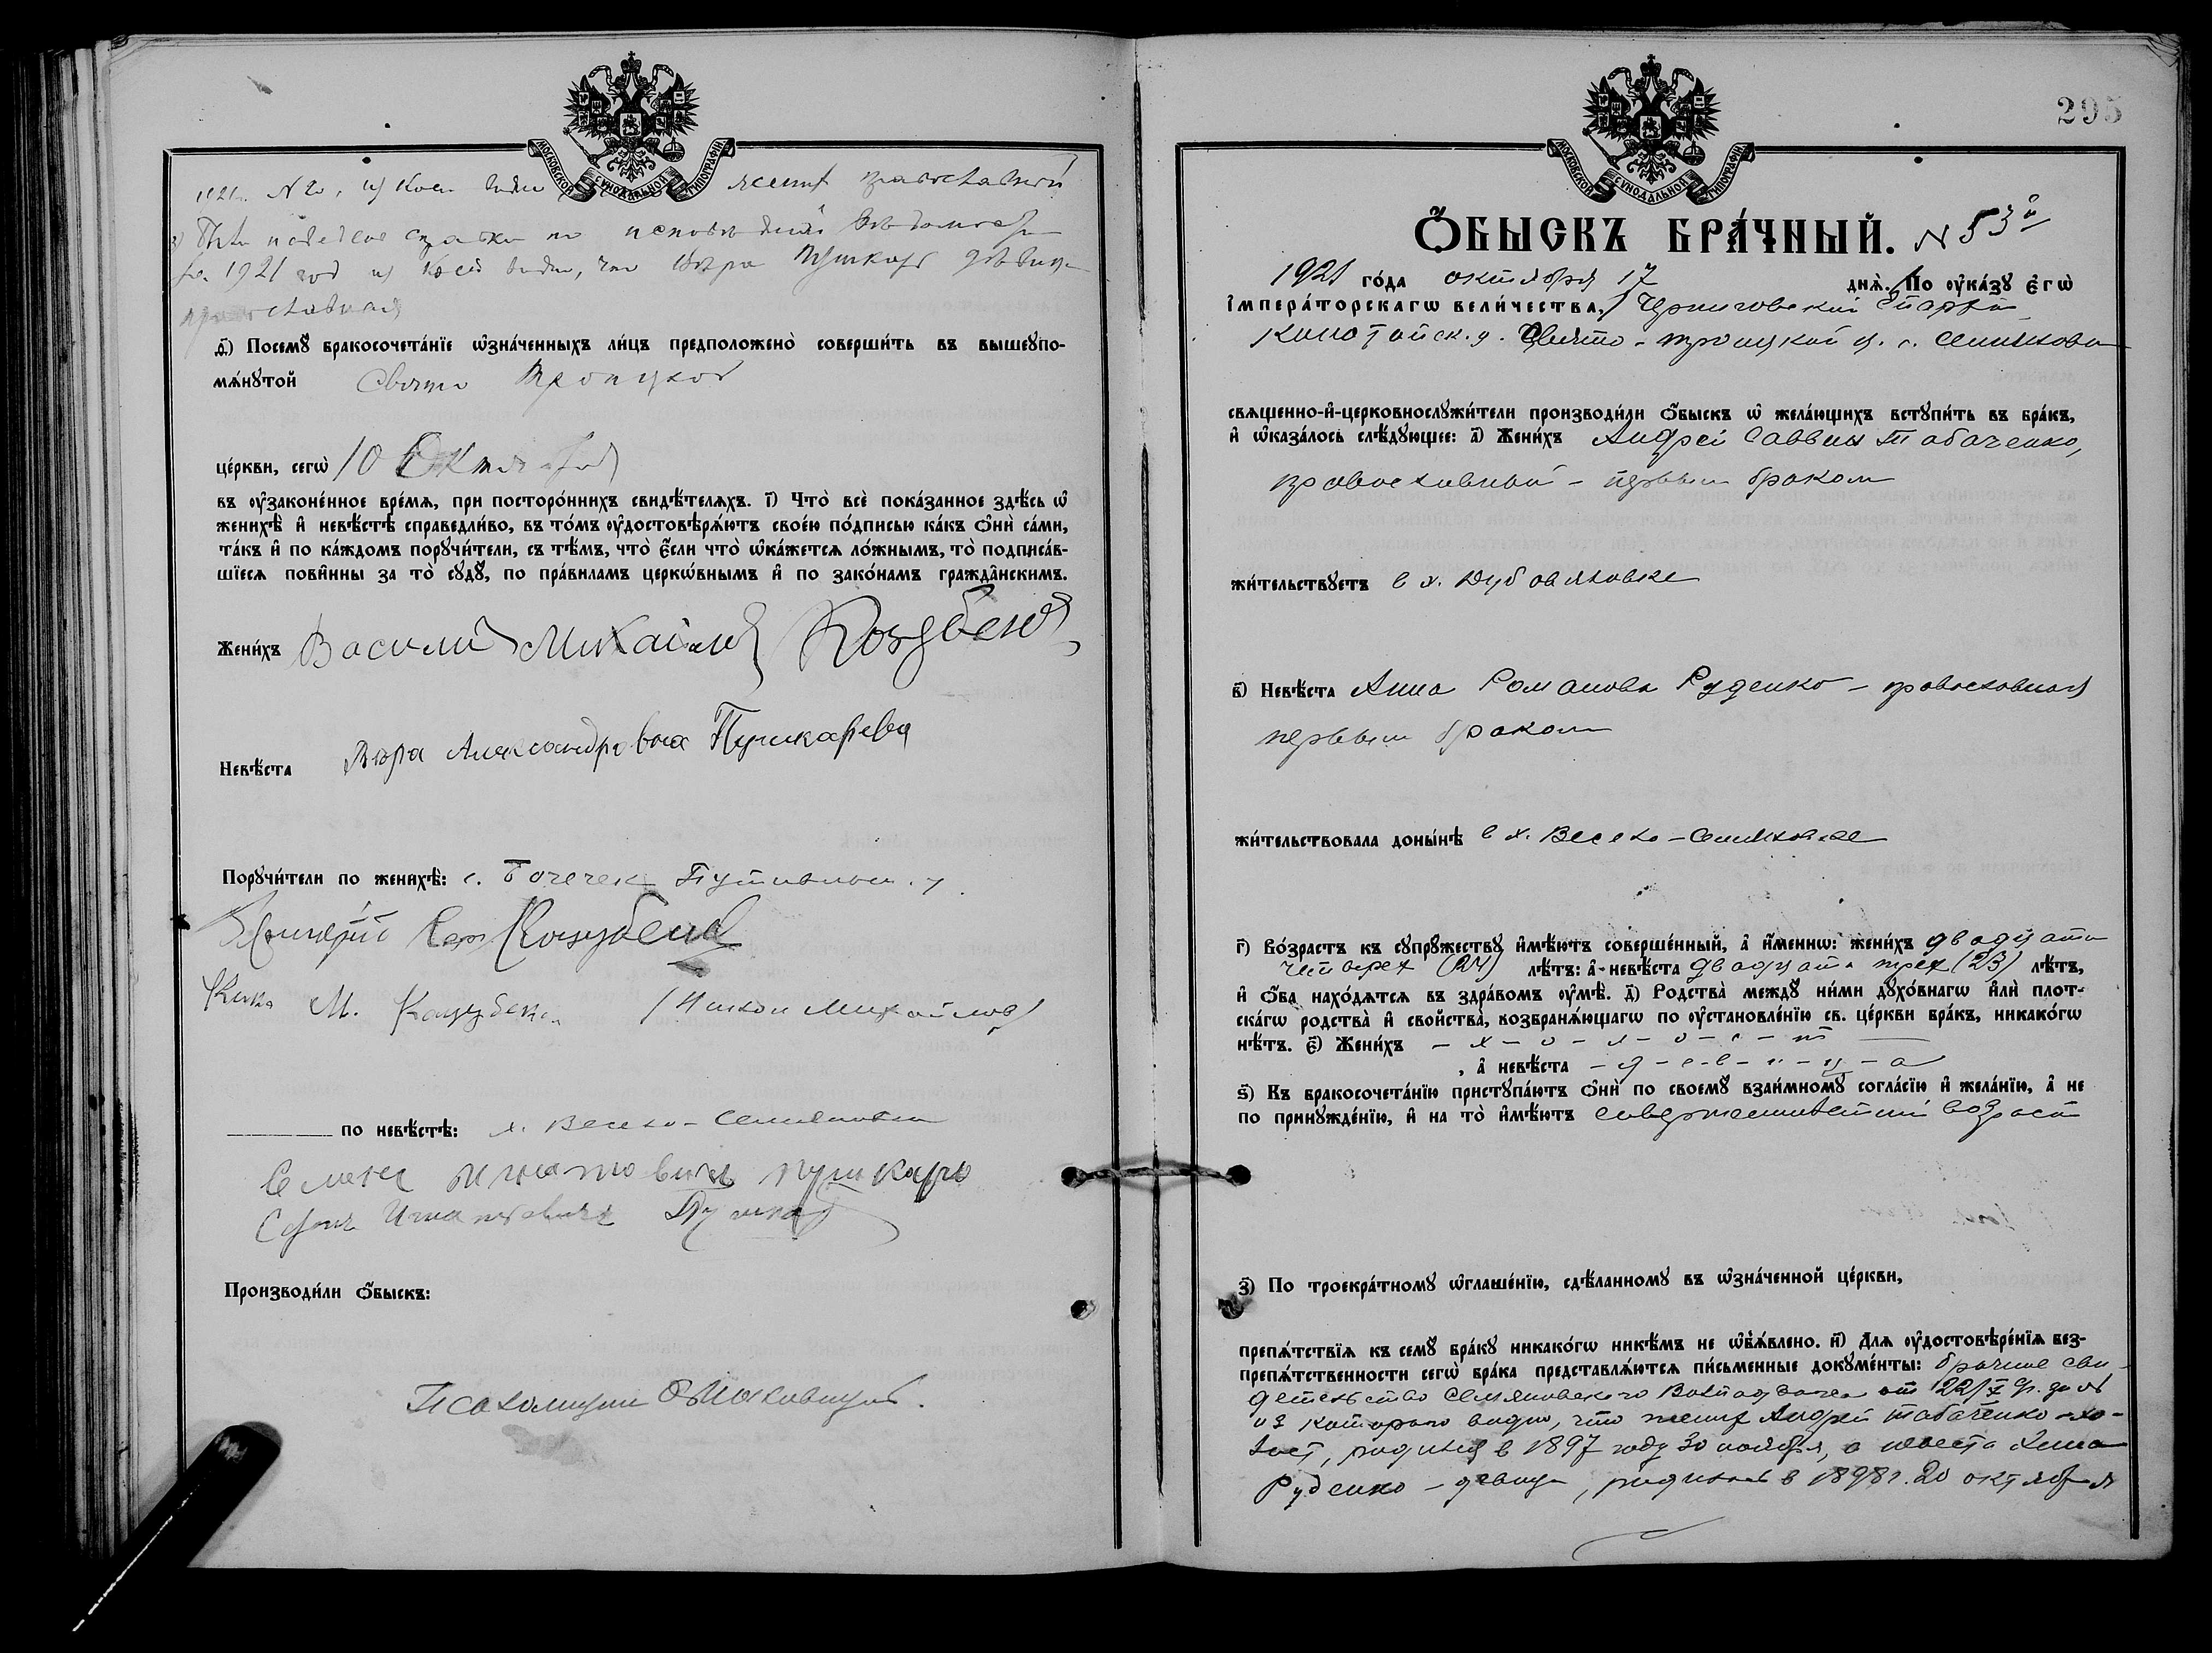 МОСКОВСКОЙ СѴНОДАЛЬНОЙ ТИПОГРАФІИ
1921 N 20, из коей видно православный
за 1921 год из коей видно, что Вѣра Пушкарь дѣвица
православная
ѳ҃) Посемꙋ бракосочета́нїе ѡзна́ченныхъ ли́цъ предположено̀ соверши́ть въ вышеꙋпо-
мѧ́нꙋтой Свято Троицкой
це́ркви, сегѡ̀ 10 Октября
въ ᲂу҆законе́нное вре́мѧ, при посторо́ннихъ свидѣ́телѧхъ. і҃) Что̀ всѐ пока́занное здѣ́сь ѡ҆
женихѣ̀ и҆ невѣ́стѣ справедли́во, въ то́мъ ᲂу҆достовѣрѧ́ютъ свое́ю по́дписью ка́къ ѻ҆нѝ са́ми,
та́къ и҆ по ка́ждомъ порꙋчи́тели, съ тѣ́мъ, что̀ є҆́сли что̀ ѡ҆ка́жетсѧ ло́жнымъ, то̀ подписа́в-
шїесѧ пови́нны за то̀ сꙋдꙋ̀, по пра́виламъ церко́внымъ и҆ по зако́намъ гражда́нскимъ.
Жени́хъ Василий Михайлов Коцубенко
Невѣ́ста Вера Александровна Пушкарева
Порꙋчи́тели по женихѣ̀: с. Бочечек Путивльск. у.
Коцубенко
М. Коцубенко (Никон Михайлов)
по невѣ́стѣ: х. Весело-Семяновки
Семен Игнатовичъ пушкарь
Игнатовичъ Пушкар
Производи́ли ѻ҆́быскъ:
Псаломщик
295
МОСКОВСКОЙ СѴНОДАЛЬНОЙ ТИПОГРАФІИ
Ѻ҆́БЫСКЪ БРА́ЧНЫЙ. N 53й
1921 го́да октября 17 днѧ̀. По ᲂу҆ка́зꙋ є҆гѡ̀
і҆мпера́торскагѡ вели́чества, Черниговской Епархии
Конотопск. у. Свято-троицкой ц. с. Семяновки
свѧщенно-и҆-церковнослꙋжи́тели производи́ли ѻ҆́быскъ ѡ҆ жела́ющихъ встꙋпи́ть въ бра́къ,
и҆ ѡ҆каза́лось слѣ́дꙋющее: а҃) Жени́хъ Андрей Саввин Табаченко,
православный - первым браком
жи́тельствꙋетъ в х. Дубовязовке
в҃) Невѣ́ста Анна Романова Руденко - православная
первым браком
жи́тельствовала доны́нѣ в х. Весело-Семяновке
г҃) Во́зрастъ къ сꙋпрꙋ́жествꙋ и҆мѣ́ютъ соверше́нный, а҆ и҆́меннѡ: жени́хъ двадцати
четырех (24) лѣ́тъ: а҆ невѣ́ста двадцати трех (23) лѣ́тъ,
и҆ ѻ҆́ба нахо́дѧтсѧ въ здра́вомъ ᲂу҆мѣ̀. д҃) Родства̀ междꙋ̀ ни́ми дꙋхо́внагѡ и҆лѝ плот-
ска́гѡ родства̀ и҆ сво́йства̀, возбранѧ́ющагѡ по ᲂу҆становле́нїю св. це́ркви бра́къ, никако́гѡ
нѣ́тъ. є҃) Жени́хъ - х - о - л - о - с - т
, а҆ невѣ́ста - д - е - в - и - ц - а
ѕ҃) Къ бракосочета́нїю пристꙋпа́ютъ ѻ҆нѝ по своемꙋ̀ взаи́мномꙋ согла́сїю и҆ жела́нїю, а҆ не
по принꙋжде́нїю, и҆ на то̀ и҆мѣ́ютъ совершеннолетний возраст
з҃) По троекра́тномꙋ ѡ҆глаше́нїю, сдѣ́ланномꙋ въ ѡ҆зна́ченной це́ркви,
препѧ́тствїѧ къ семꙋ̀ бра́кꙋ никако́гѡ никѣ́мъ не ѡ҆б̾ѧ́влено. и҃) Длѧ ᲂу҆достовѣре́нїѧ без-
препѧ́тственности сегѡ̀ бра́ка представлѧ́ютсѧ пи́сьменные докꙋме́нты: брачное сви-
детельство Семяновского от 22/X
из которого видно, что жених Андрей Табаченко - хо-
лост, родился в 1897 году 30 ноября, а невеста Анна
Руденко - девица, родилась в 1898 г. 20 октября